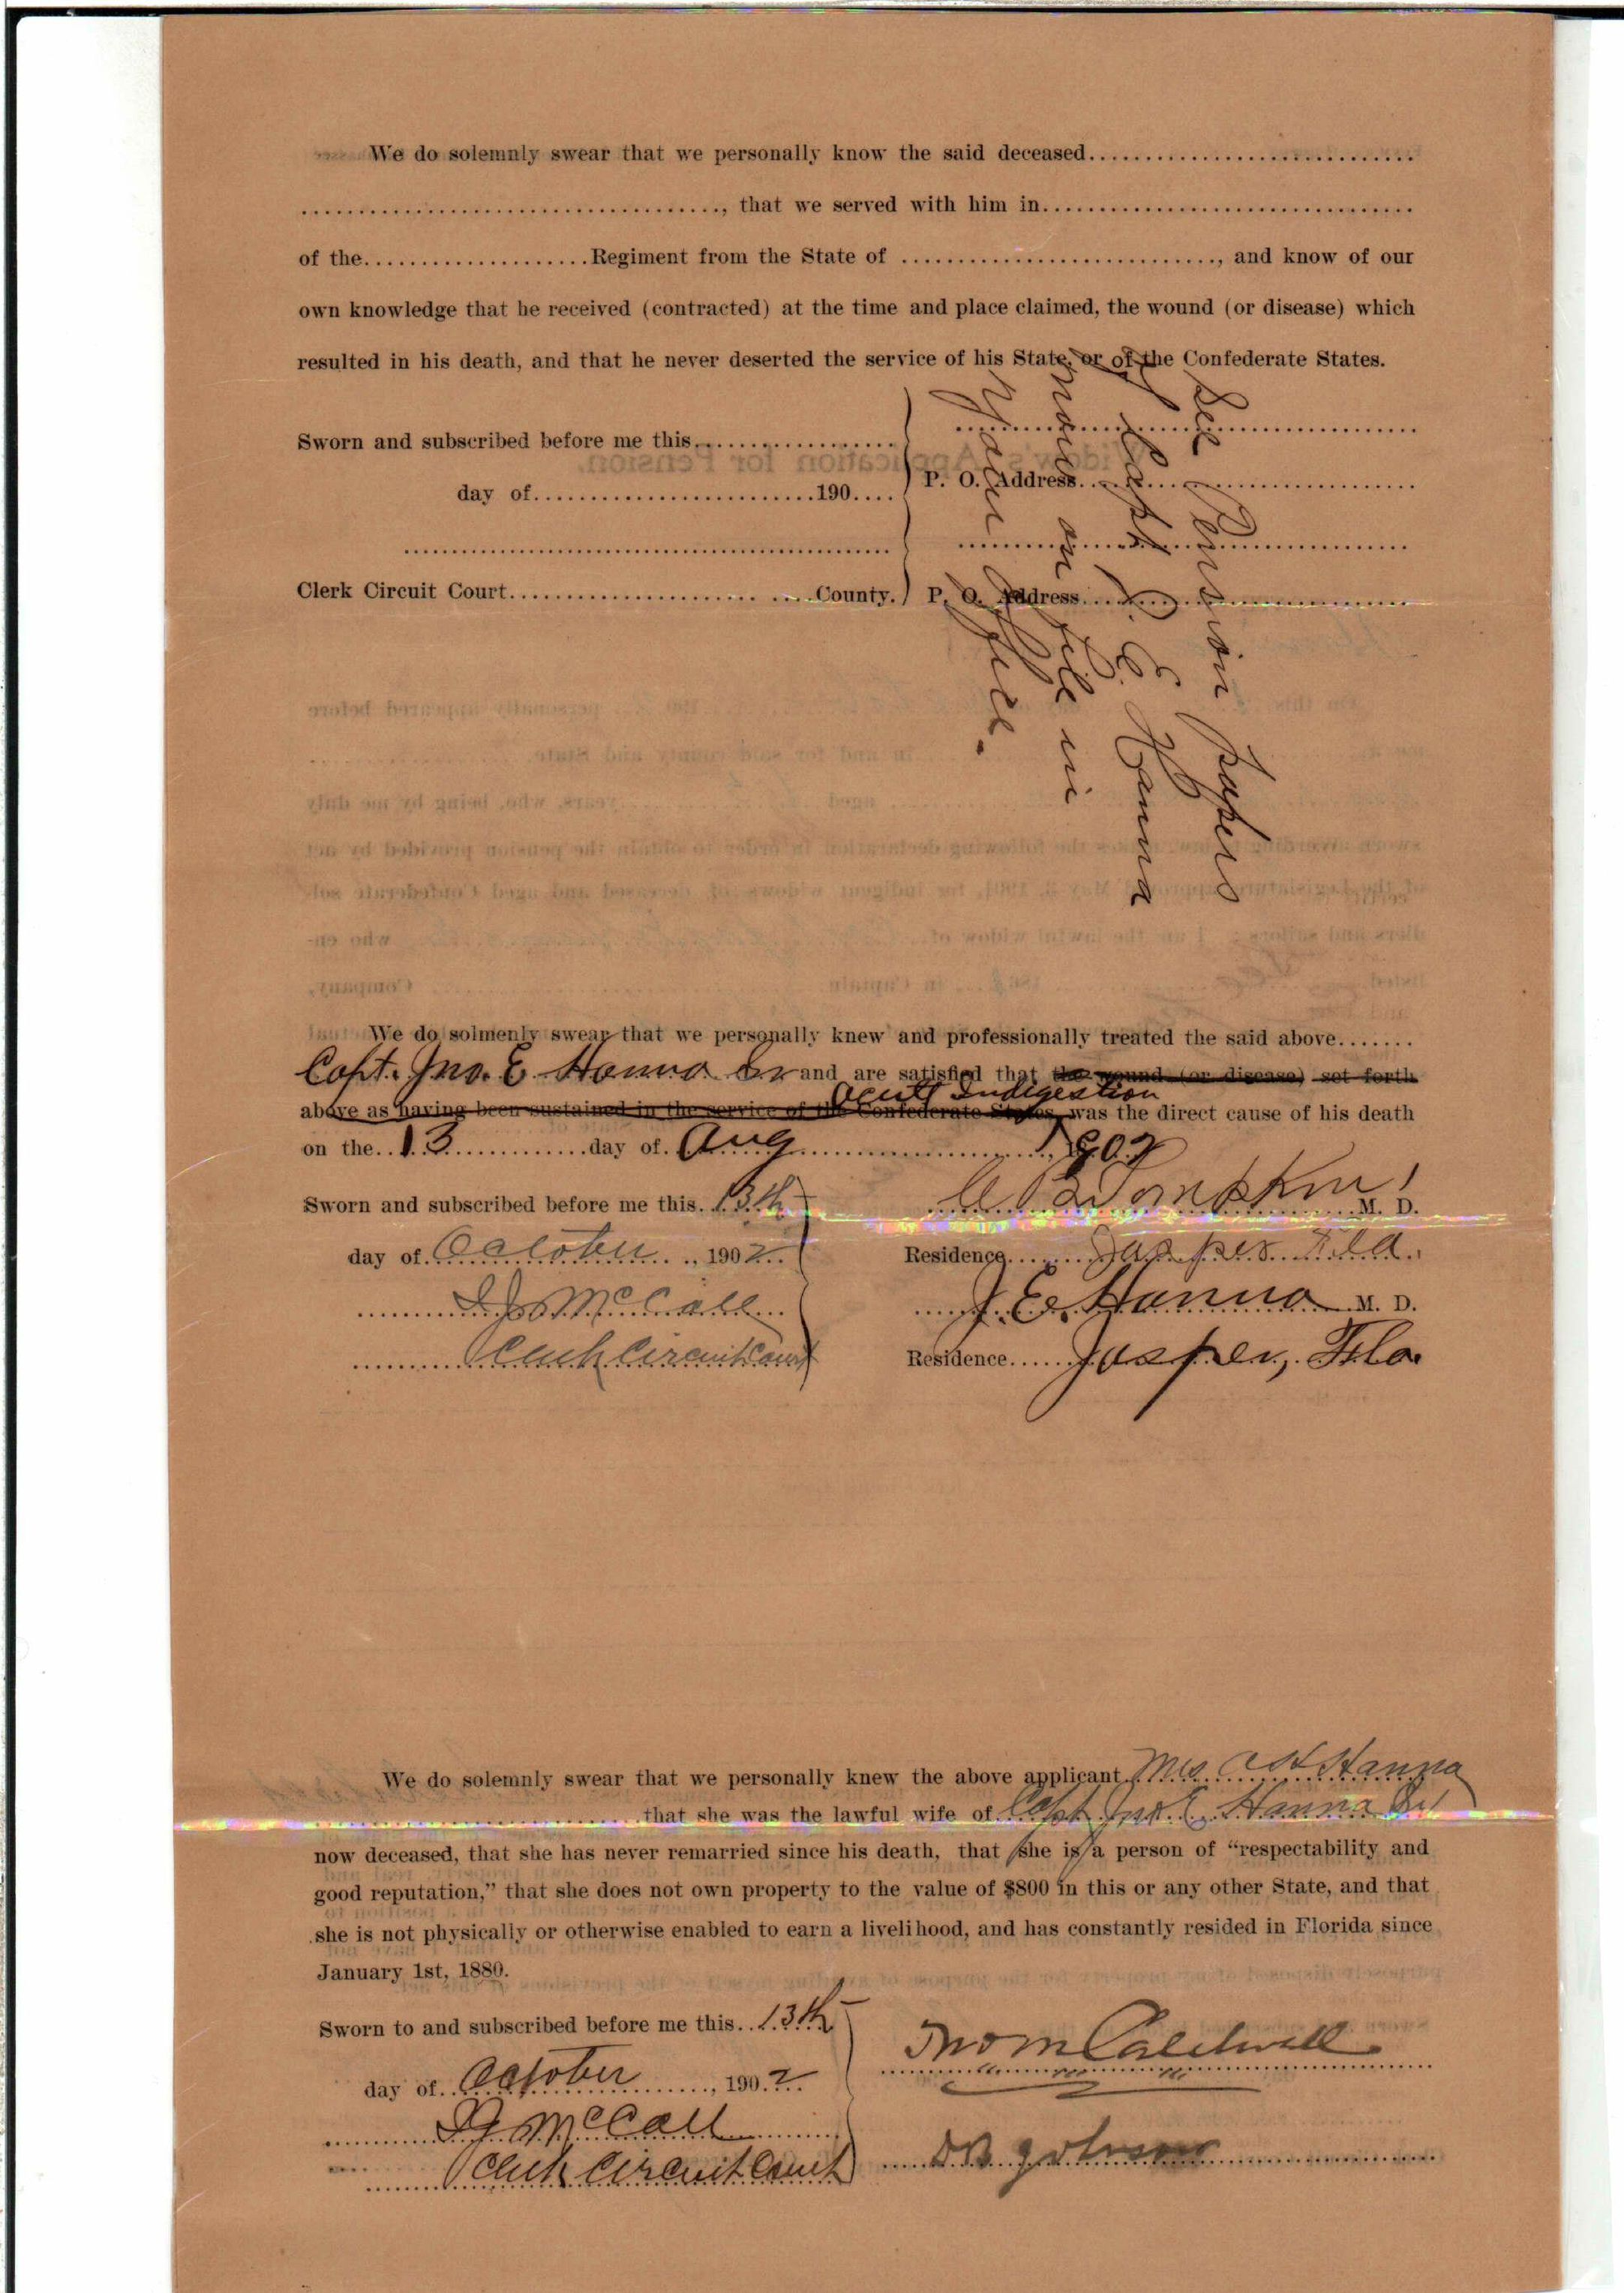 We do solemnly swear that we personally know the said deceased..............................
......................................, that we served with him in..................................
of the....................Regiment from the State of ............................, and know of our
own knowledge that he received (contracted) at the time and place claimed, the wound (or disease) which
resulted in his death, and that he never deserted the service of his State, or of the Confederate States.
Sworn and subscribed before me this..................
day of.........................190....
Clerk Circuit Court...........................County.
P. O. Address..............................
P. O. Address..............................
See Pension papers
of Capt J. E. Hanna
now on file in
your office.
We do solmenly swear that we personally knew and professionally treated the said above.......
Capt. Jno. E Hanna Sr and are satisfied that the wound (or disease) set forth
acute Indigestion
above as having been sustained in the service of the Confederate States, was the direct cause of his death
on the..13............day of. Aug......................, 1902
Sworn and subscribed before me this. 13th
day of. October ..., 1902..
J. McCall
Clerk Circuit Court
Tompkins M. D.
Residence........Jasper Fla.
J. E. Hanna M. D.
Residence......Jasper, Fla.
We do solemnly swear that we personally knew the above applicant Mrs Hanna
..............................that she was the lawful wife of Capt Jno E Hanna Sr
now deceased, that she has never remarried since his death, that she is a person of “respectability and
good reputation,” that she does not own property to the value of $800 in this or any other State, and that
she is not physically or otherwise enabled to earn a livelihood, and has constantly resided in Florida since
January 1st, 1880.
Sworn to and subscribed before me this..13th
day of. October........, 190.2..
J. McCall
Clerk Circuit Court
Jno M Caldwell
D B Johnson